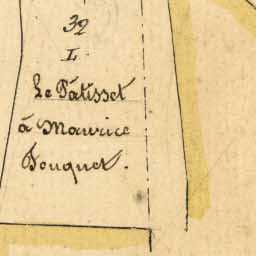 32
L
Le Pâtisset
á Maurice
Bouquet.